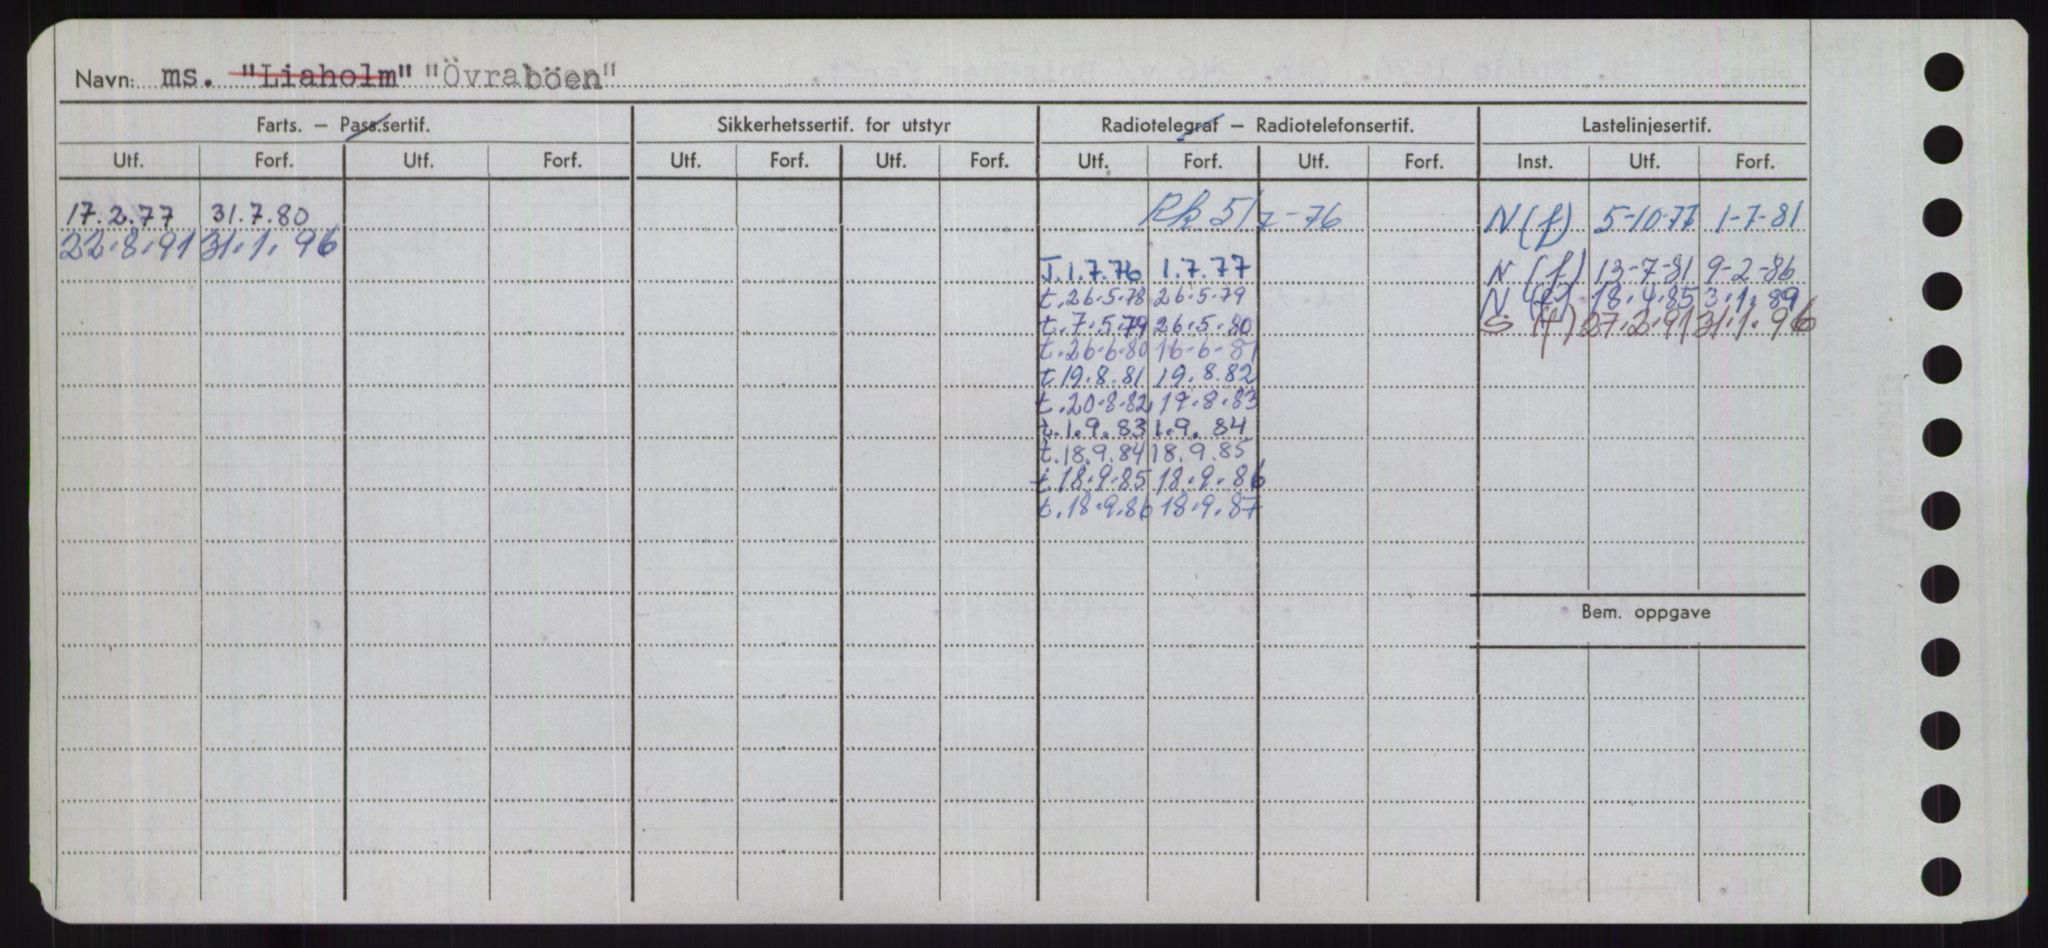 Navn: ms. "Liaholm" "Övraböen"
Farts. – Pass.sertif. Sikkerhetssertif. for utstyr Radiotelegraf – Radiotelefonsertif. Lastelinjesertif.
Utf. Forf. Utf. Forf. Utf. Forf. Utf. Forf. Utf. Forf. Utf. Forf. Inst. Utf. Forf.
17.2.77 31.7.80 Rk 5/7-76 N(f) 5-10-77 1-7-81
22.8.91 31.1.96
T.1.7.76 1.7.77 N(f) 13-7-81 9-2-86
t.26.5.78 26.5.79 N(f) 18.4.85 3.1.89
t.7.5.79 26.5.80 S (f) 27.2.91 31.1.96
t.26.6.80 16-6-81
t.19.8.81 19.8.82
t.20.8.82 19.8.83
t.1.9.83 1.9.84
t.18.9.84 18.9.85
t.18.9.85 18.9.86
t.18.9.86 18.9.87
Bem. oppgave